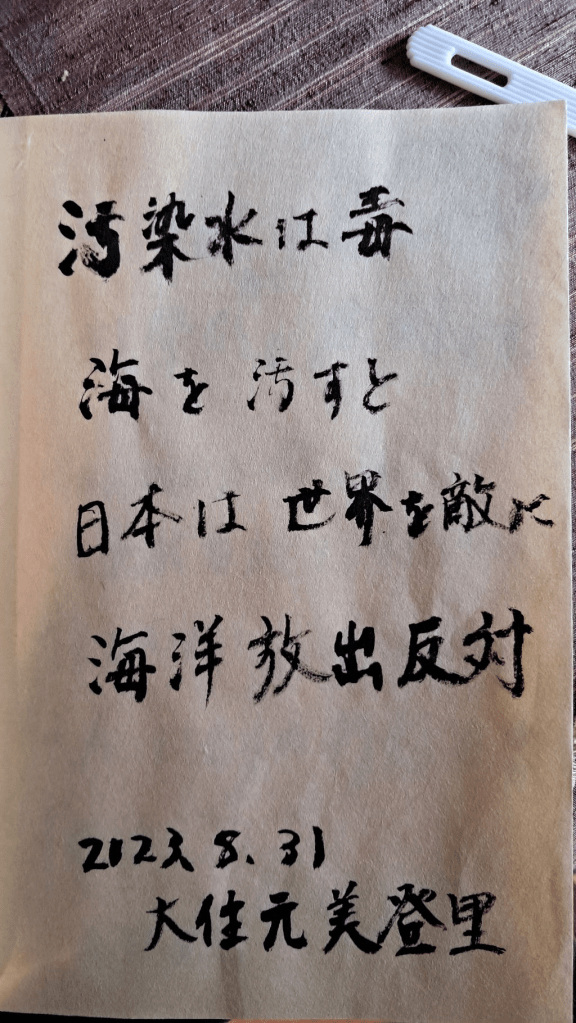 汚染水は毒
海を汚すと
日本は世界を敵に
海洋放出反対
2023.8.31
大住元美登里